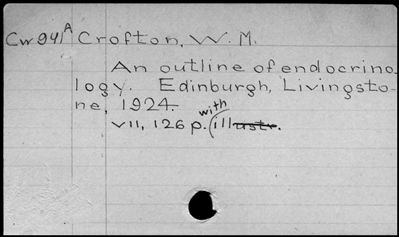 Cw941A Crofton, W. M.
An outline of endocrino-
logy. Edinburgh, Livingsto-
ne, 1924.
VII, 126 p. (with illustr.